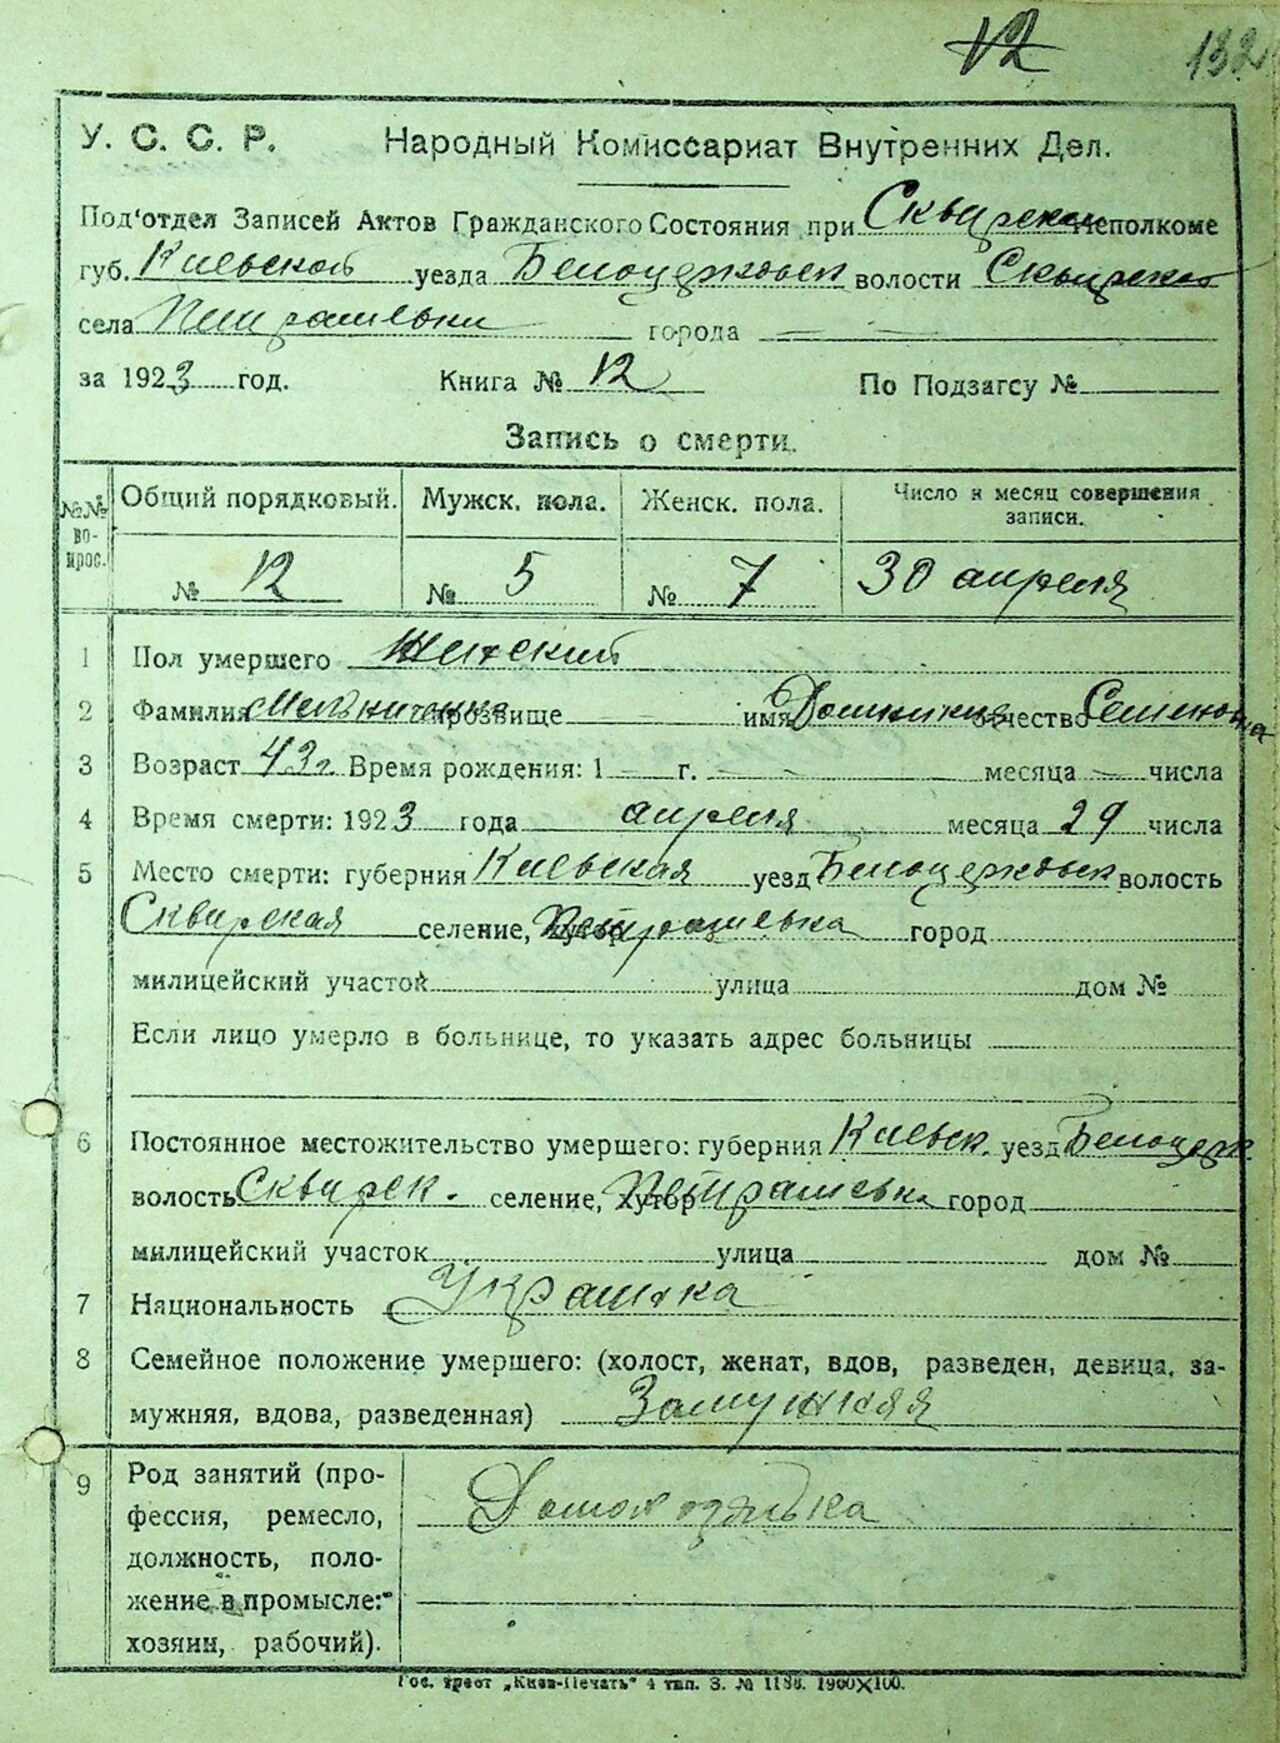 12 132
У. С. С. Р. Народный Комиссариат Внутренних Дел.
Под'отдел Записей Актов Гражданского Состояния при Сквирском Исполкоме
губ. Киевской уезда Белоцерковск волости Сквирской
села Петрашевки города
за 1923 год. Книга № 12 По Подзагсу №
Запись о смерти.
№№ вопрос. Общий порядковый. Мужск. пола. Женск. пола. Число и месяц совершения записи.
№ 12 № 5 № 7 30 апреля
1 Пол умершего Женский
2 Фамилия прозвище имя отчество Семеновна
3 Возраст 43 г. Время рождения: 1 — г. — месяца — числа
4 Время смерти: 1923 года апреля месяца 29 числа
5 Место смерти: губерния Киевская уезд Белоцерковск волость
Сквирская селение, хутор Петрашевка город
милицейский участок улица дом №
Если лицо умерло в больнице, то указать адрес больницы
6 Постоянное местожительство умершего: губерния Киевск. уезд Белоцерк.
волость Сквирск. селение, хутор Петрашевка город
милицейский участок улица дом №
7 Национальность Украинка
8 Семейное положение умершего: (холост, женат, вдов, разведен, девица, за-
мужняя, вдова, разведенная) Замужняя
9 Род занятий (про-
фессия, ремесло,
должность, поло-
жение в промысле:
хозяин, рабочий).
Домохозяйка
Гос. трест „Киев-Печать“ 4 тип. З. № 1188. 1900X100.